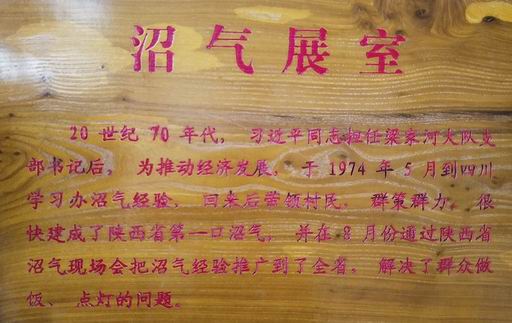 沼气展室
20 世纪 70 年代， 习近平同志担任梁家河大队支
部书记后， 为推动经济发展， 于 1974 年 5 月到四川
学习办沼气经验， 回来后带领村民， 群策群力， 很
快建成了陕西省第一口沼气， 并在 8 月份通过陕西省
沼气现场会把沼气经验推广到了全省， 解决了群众做
饭、 点灯的问题。